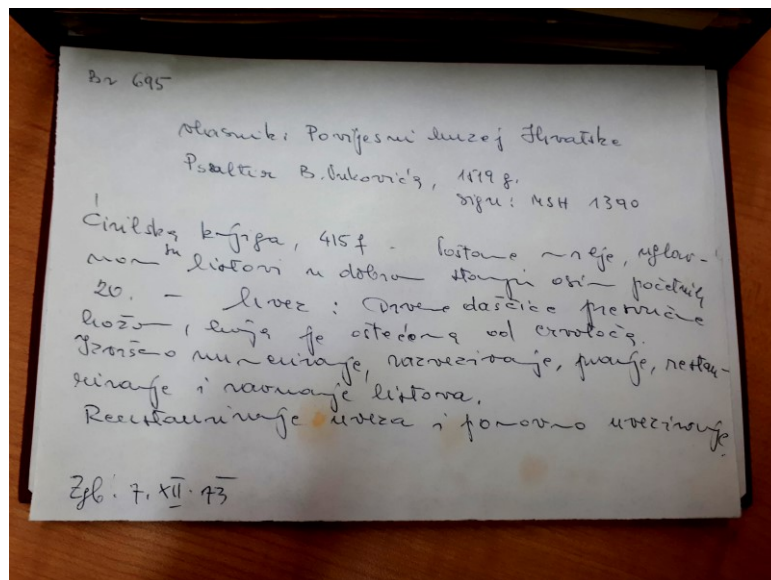 Br 695
vlasnik: Povijesni muzej Hrvatske
Psaltir B. Vukovića, 1519 g.
sign: MSH 1390
Ćirilska knjiga, 415 f -
su listovi u dobrom stanju osim početnih
20. - Uvez: Drvene daščice presvučene
kožom, koja je oštećena od crvotoča.
Izvršeno numeriranje, razvezivanje, pranje, restau-
riranje i ravnanje listova.
Restauriranje uveza i ponovno uvezivanje.
Zgb. 7. XII. 73